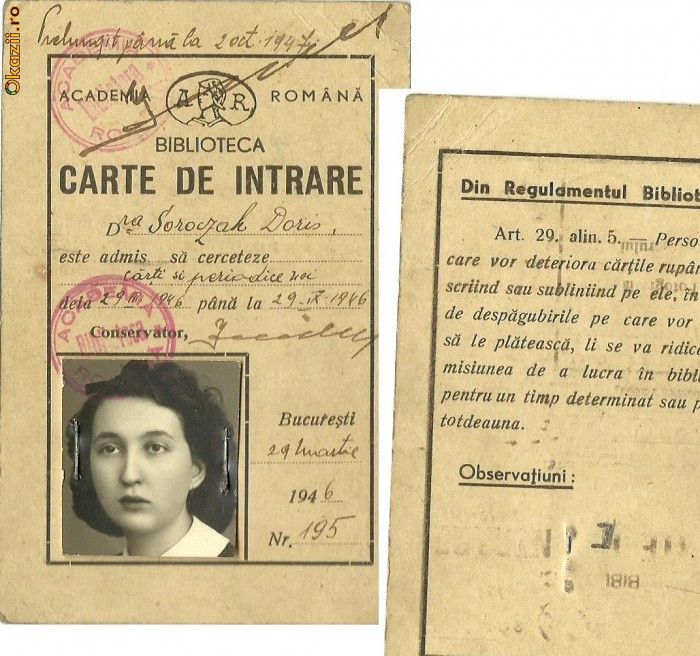 Okazii.ro
Prelungit până la 2 oct. 1947
ACADEMIA A R ROMÂNĂ
BIBLIOTECA
CARTE DE INTRARE
Dra Soroczak Doris,
este admis să cerceteze
cărti si periodice noi
dela 29 III 1946 până la 29-IX-1946
Conservator,
București
29 Martie
1946
Nr. 195
Din Regulamentul Bibliot
Art. 29. alin. 5. — Perso
care vor deteriora cărțile rupân
scriind sau subliniind pe ele, în
de despăgubirile pe care vor
să le plătească, li se va ridic
misiunea de a lucra în bibli
pentru un timp determinat sau p
totdeauna.
Observațiuni :